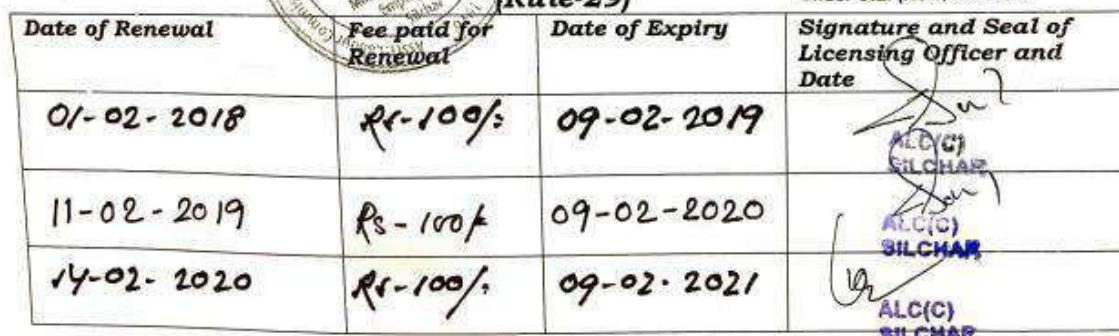 (Rule-29)
Date of Renewal Fee paid for Renewal Date of Expiry Signature and Seal of Licensing Officer and Date
01-02-2018 Rs-100/- 09-02-2019
ALC(C)
SILCHAR
11-02-2019 Rs-100/- 09-02-2020
ALC(C)
SILCHAR
14-02-2020 Rs-100/- 09-02-2021
ALC(C)
SILCHAR